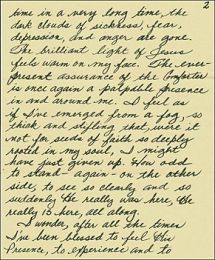 2
time in a very long time, the
dark clouds of sickness, fear,
depression, and anger are gone.
The brilliant light of Jesus
feels warm on my face. The ever-
present assurance of the Comforter
is once again a palpable presence
in and around me. I feel as
if I've emerged from a fog, so
thick and stifling that, were it
not for seeds of faith so deeply
rooted in my soul, I might
have just given up. How odd
to stand again - on the other
side, to see so clearly and so
suddenly He really was here, He
really is here, all along.
I wonder, after all the times
I've been blessed to feel His
Presence, to experience and to